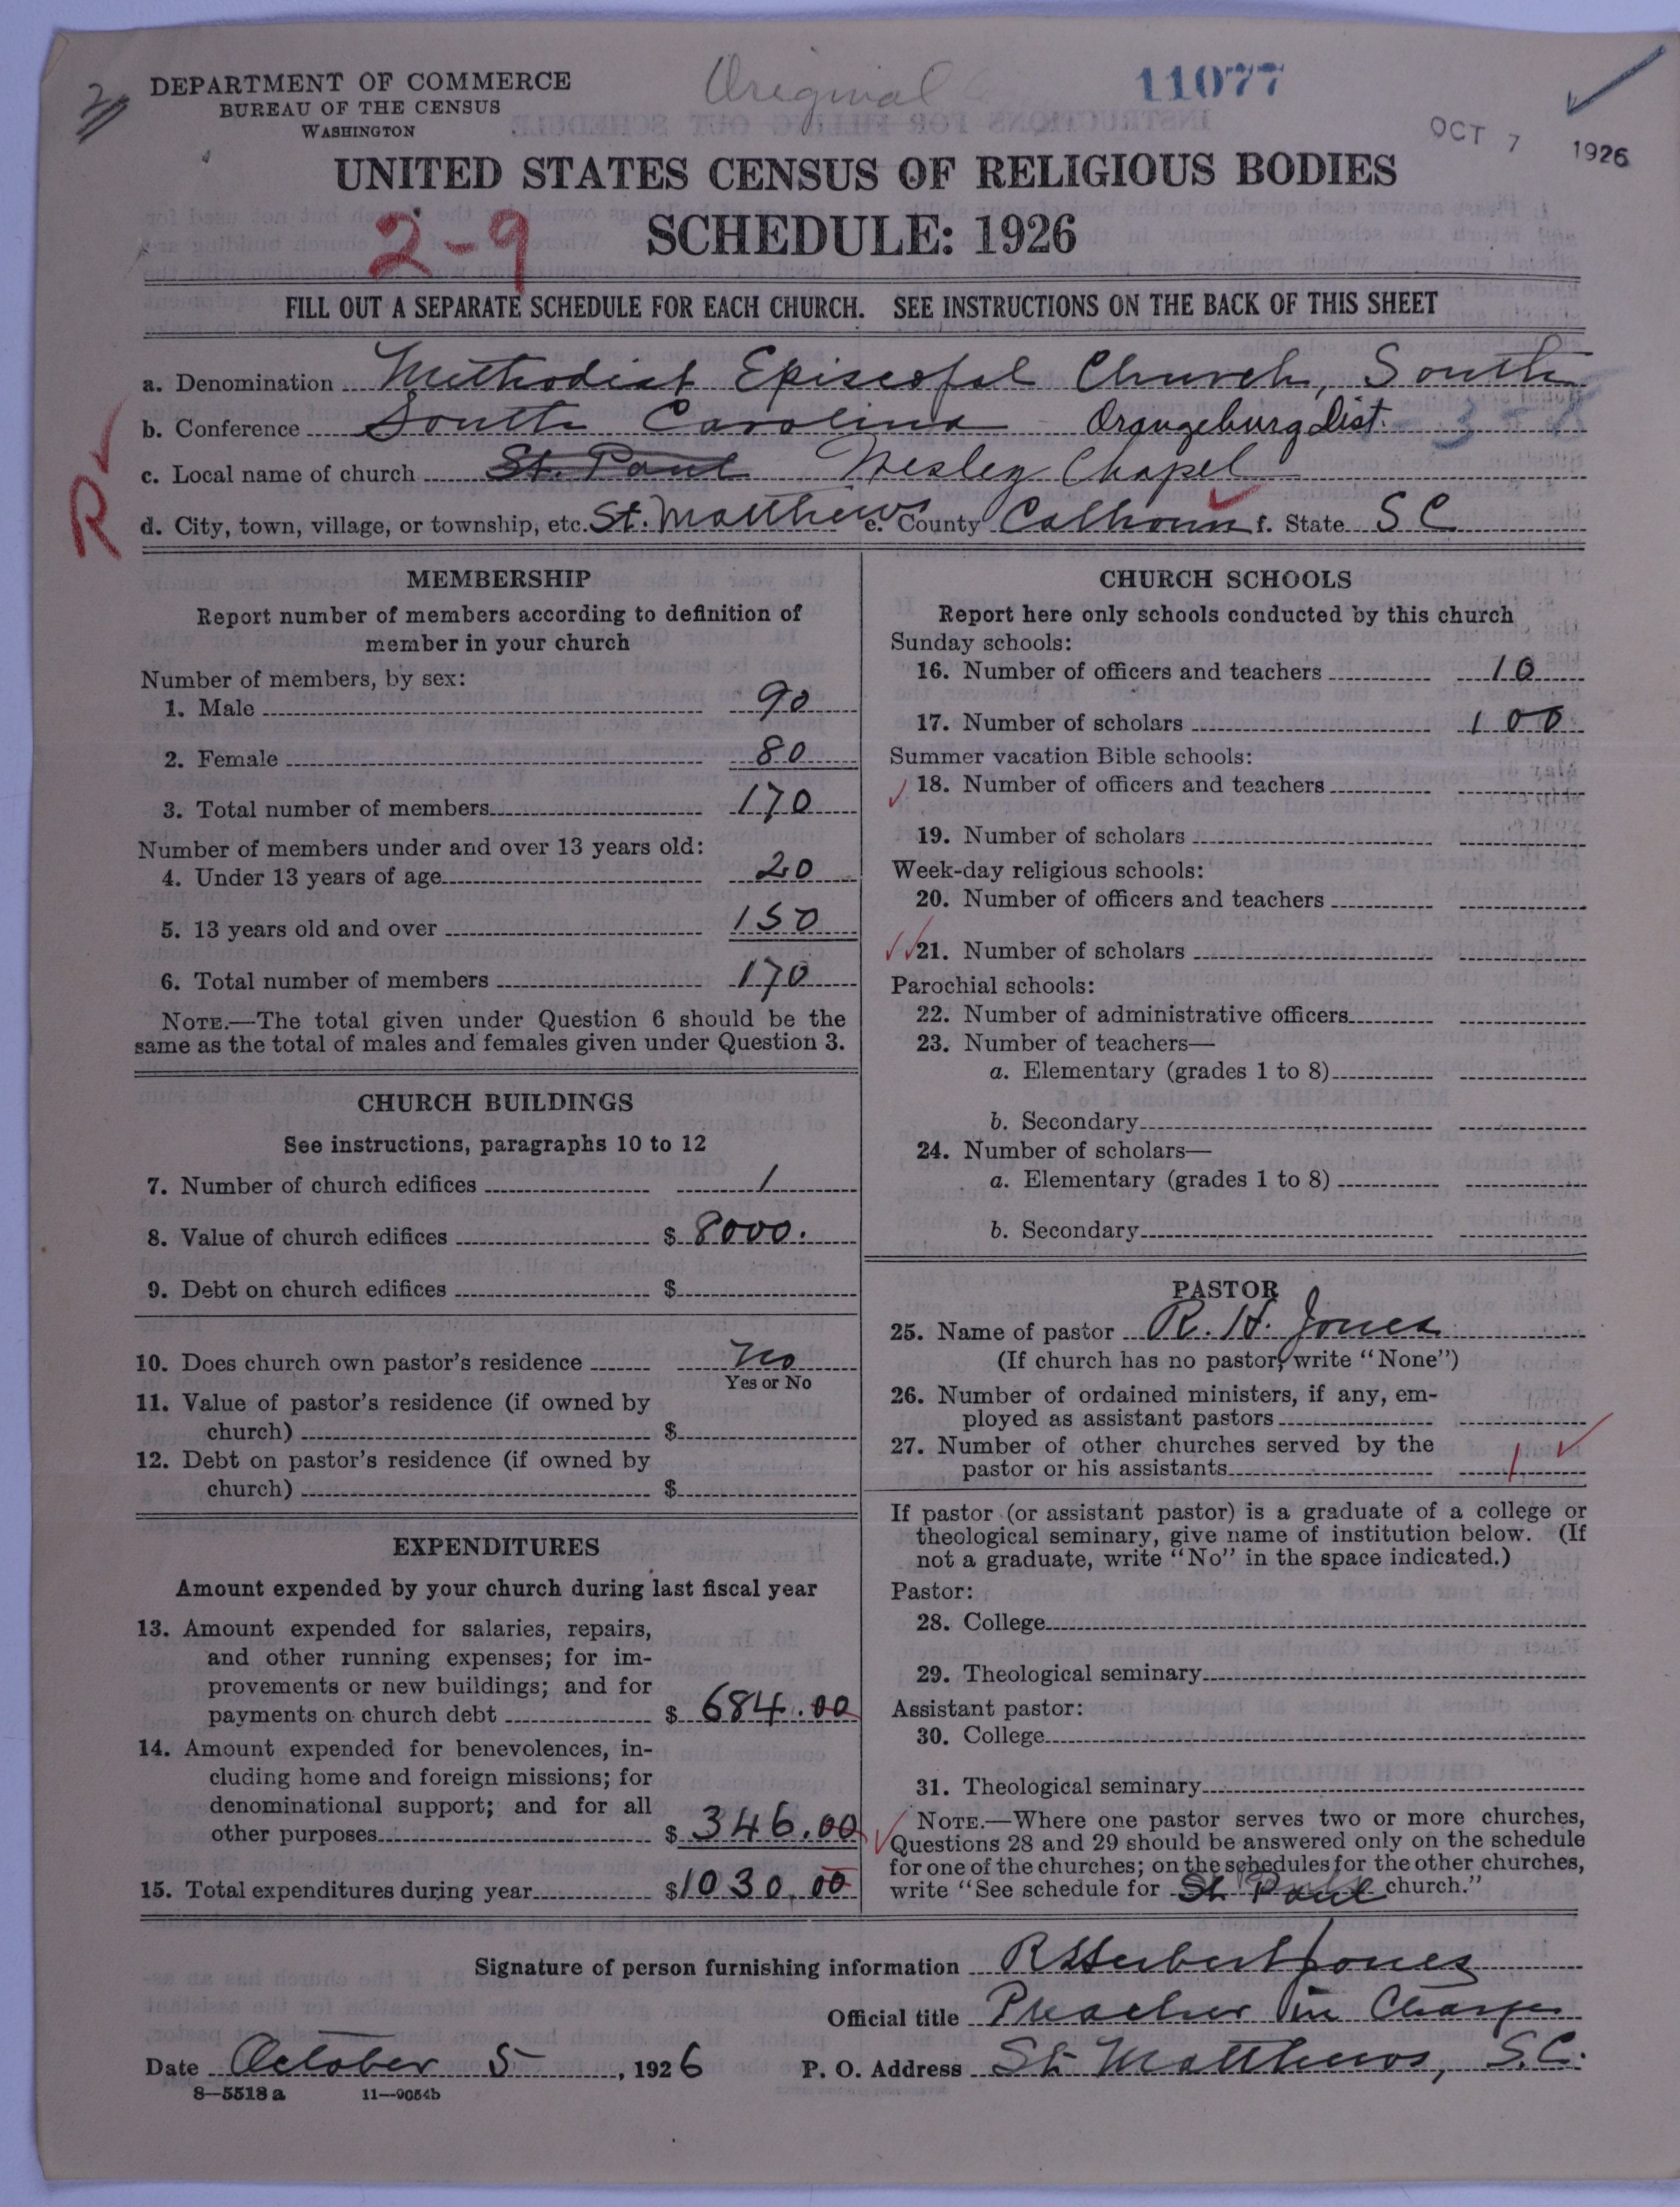 DEPARTMENT OF COMMERCE
BUREAU OF THE CENSUS
WASHINGTON
Original
11077
OCT 7 1926
UNITED STATES CENSUS OF RELIGIOUS BODIES
2-9
SCHEDULE: 1926
FILL OUT A SEPARATE SCHEDULE FOR EACH CHURCH. SEE INSTRUCTIONS ON THE BACK OF THIS SHEET
a. Denomination Methodist Episcopal Church, South
b. Conference South Carolina Orangeburg Dist.
c. Local name of church St. Paul Wesley Chapel
R
d. City, town, village, or township, etc. St. Matthews e. County Calhoun f. State S C
MEMBERSHIP
Report number of members according to definition of
member in your church
Number of members, by sex:
1. Male 90
2. Female 80
3. Total number of members 170
Number of members under and over 13 years old:
4. Under 13 years of age 20
5. 13 years old and over 150
6. Total number of members 170
NOTE.—The total given under Question 6 should be the
same as the total of males and females given under Question 3.
CHURCH BUILDINGS
See instructions, paragraphs 10 to 12
7. Number of church edifices 1
8. Value of church edifices $ 8000.
9. Debt on church edifices $
10. Does church own pastor's residence No
Yes or No
11. Value of pastor's residence (if owned by
church) $
12. Debt on pastor's residence (if owned by
church) $
EXPENDITURES
Amount expended by your church during last fiscal year
13. Amount expended for salaries, repairs,
and other running expenses; for im-
provements or new buildings; and for
payments on church debt $ 684.00
14. Amount expended for benevolences, in-
cluding home and foreign missions; for
denominational support; and for all
other purposes $ 346.00
15. Total expenditures during year $1030.00
CHURCH SCHOOLS
Report here only schools conducted by this church
Sunday schools:
16. Number of officers and teachers 10
17. Number of scholars 100
Summer vacation Bible schools:
18. Number of officers and teachers
19. Number of scholars
Week-day religious schools:
20. Number of officers and teachers
21. Number of scholars
Parochial schools:
22. Number of administrative officers
23. Number of teachers—
a. Elementary (grades 1 to 8)
b. Secondary
24. Number of scholars—
a. Elementary (grades 1 to 8)
b. Secondary
PASTOR
25. Name of pastor R. H. Jones
(If church has no pastor, write "None")
26. Number of ordained ministers, if any, em-
ployed as assistant pastors
27. Number of other churches served by the
pastor or his assistants 1
If pastor (or assistant pastor) is a graduate of a college or
theological seminary, give name of institution below. (If
not a graduate, write "No" in the space indicated.)
Pastor:
28. College
29. Theological seminary
Assistant pastor:
30. College
31. Theological seminary
NOTE.—Where one pastor serves two or more churches,
Questions 28 and 29 should be answered only on the schedule
for one of the churches; on the schedules for the other churches,
write "See schedule for St Paul church."
Signature of person furnishing information R Herbert Jones
Official title Preacher in Charge
Date October 5, 1926 P. O. Address St. Matthews, S.C.
8—5518 a 11—9054b